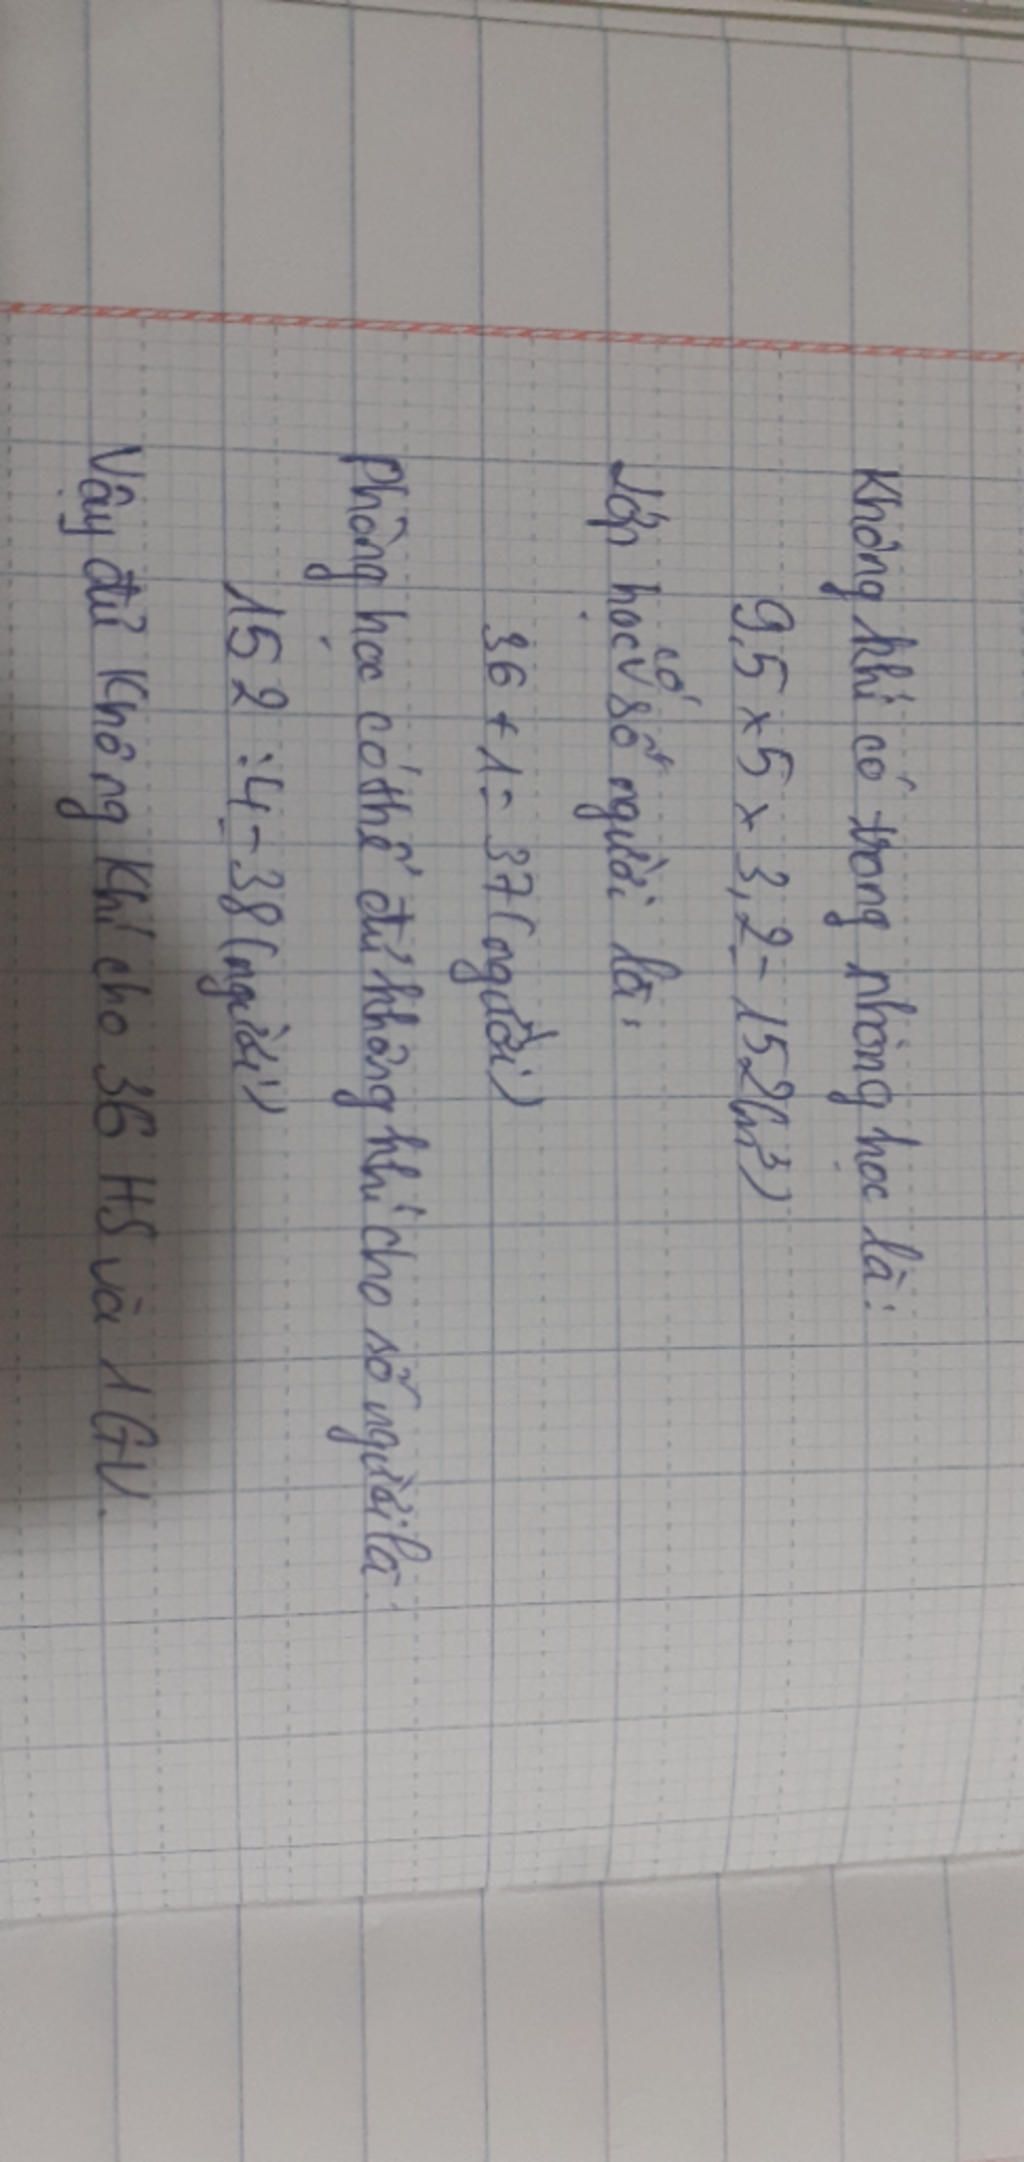 Không khí có trong phòng học là:
9,5 x 5 x 3,2 = 152(m³)
Lớp học có số người là:
36 + 1 = 37 (người)
Phòng học có thể đủ không khí cho số người là:
152 : 4 = 38 (người)
Vậy đủ không khí cho 36 HS và 1 GV.